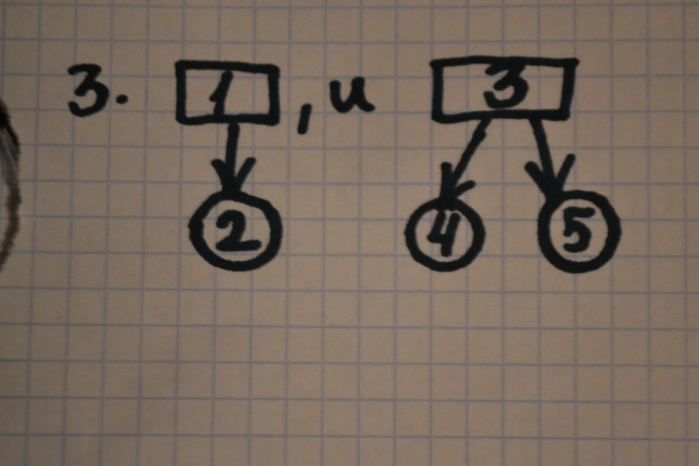 3. 1, и 3
2 4 5